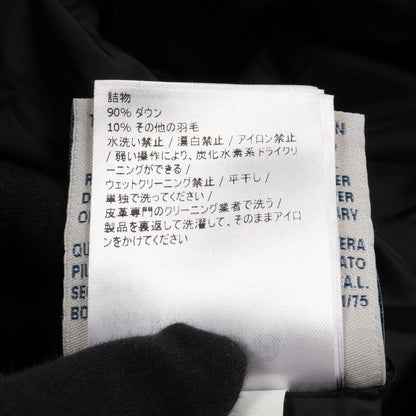 詰物
90% ダウン
10% その他の羽毛
水洗い禁止 / 漂白禁止 / アイロン禁止
/ 弱い操作により、炭化水素系ドライクリ
ーニングができる /
ウェットクリーニング禁止 / 平干し /
単独で洗ってください /
皮革専門のクリーニング業者で洗う /
製品を裏返して洗濯して、そのままアイロ
ンをかけてください
QU
PIU
SE
BO
ERA
ATO
.A.L.
1/75